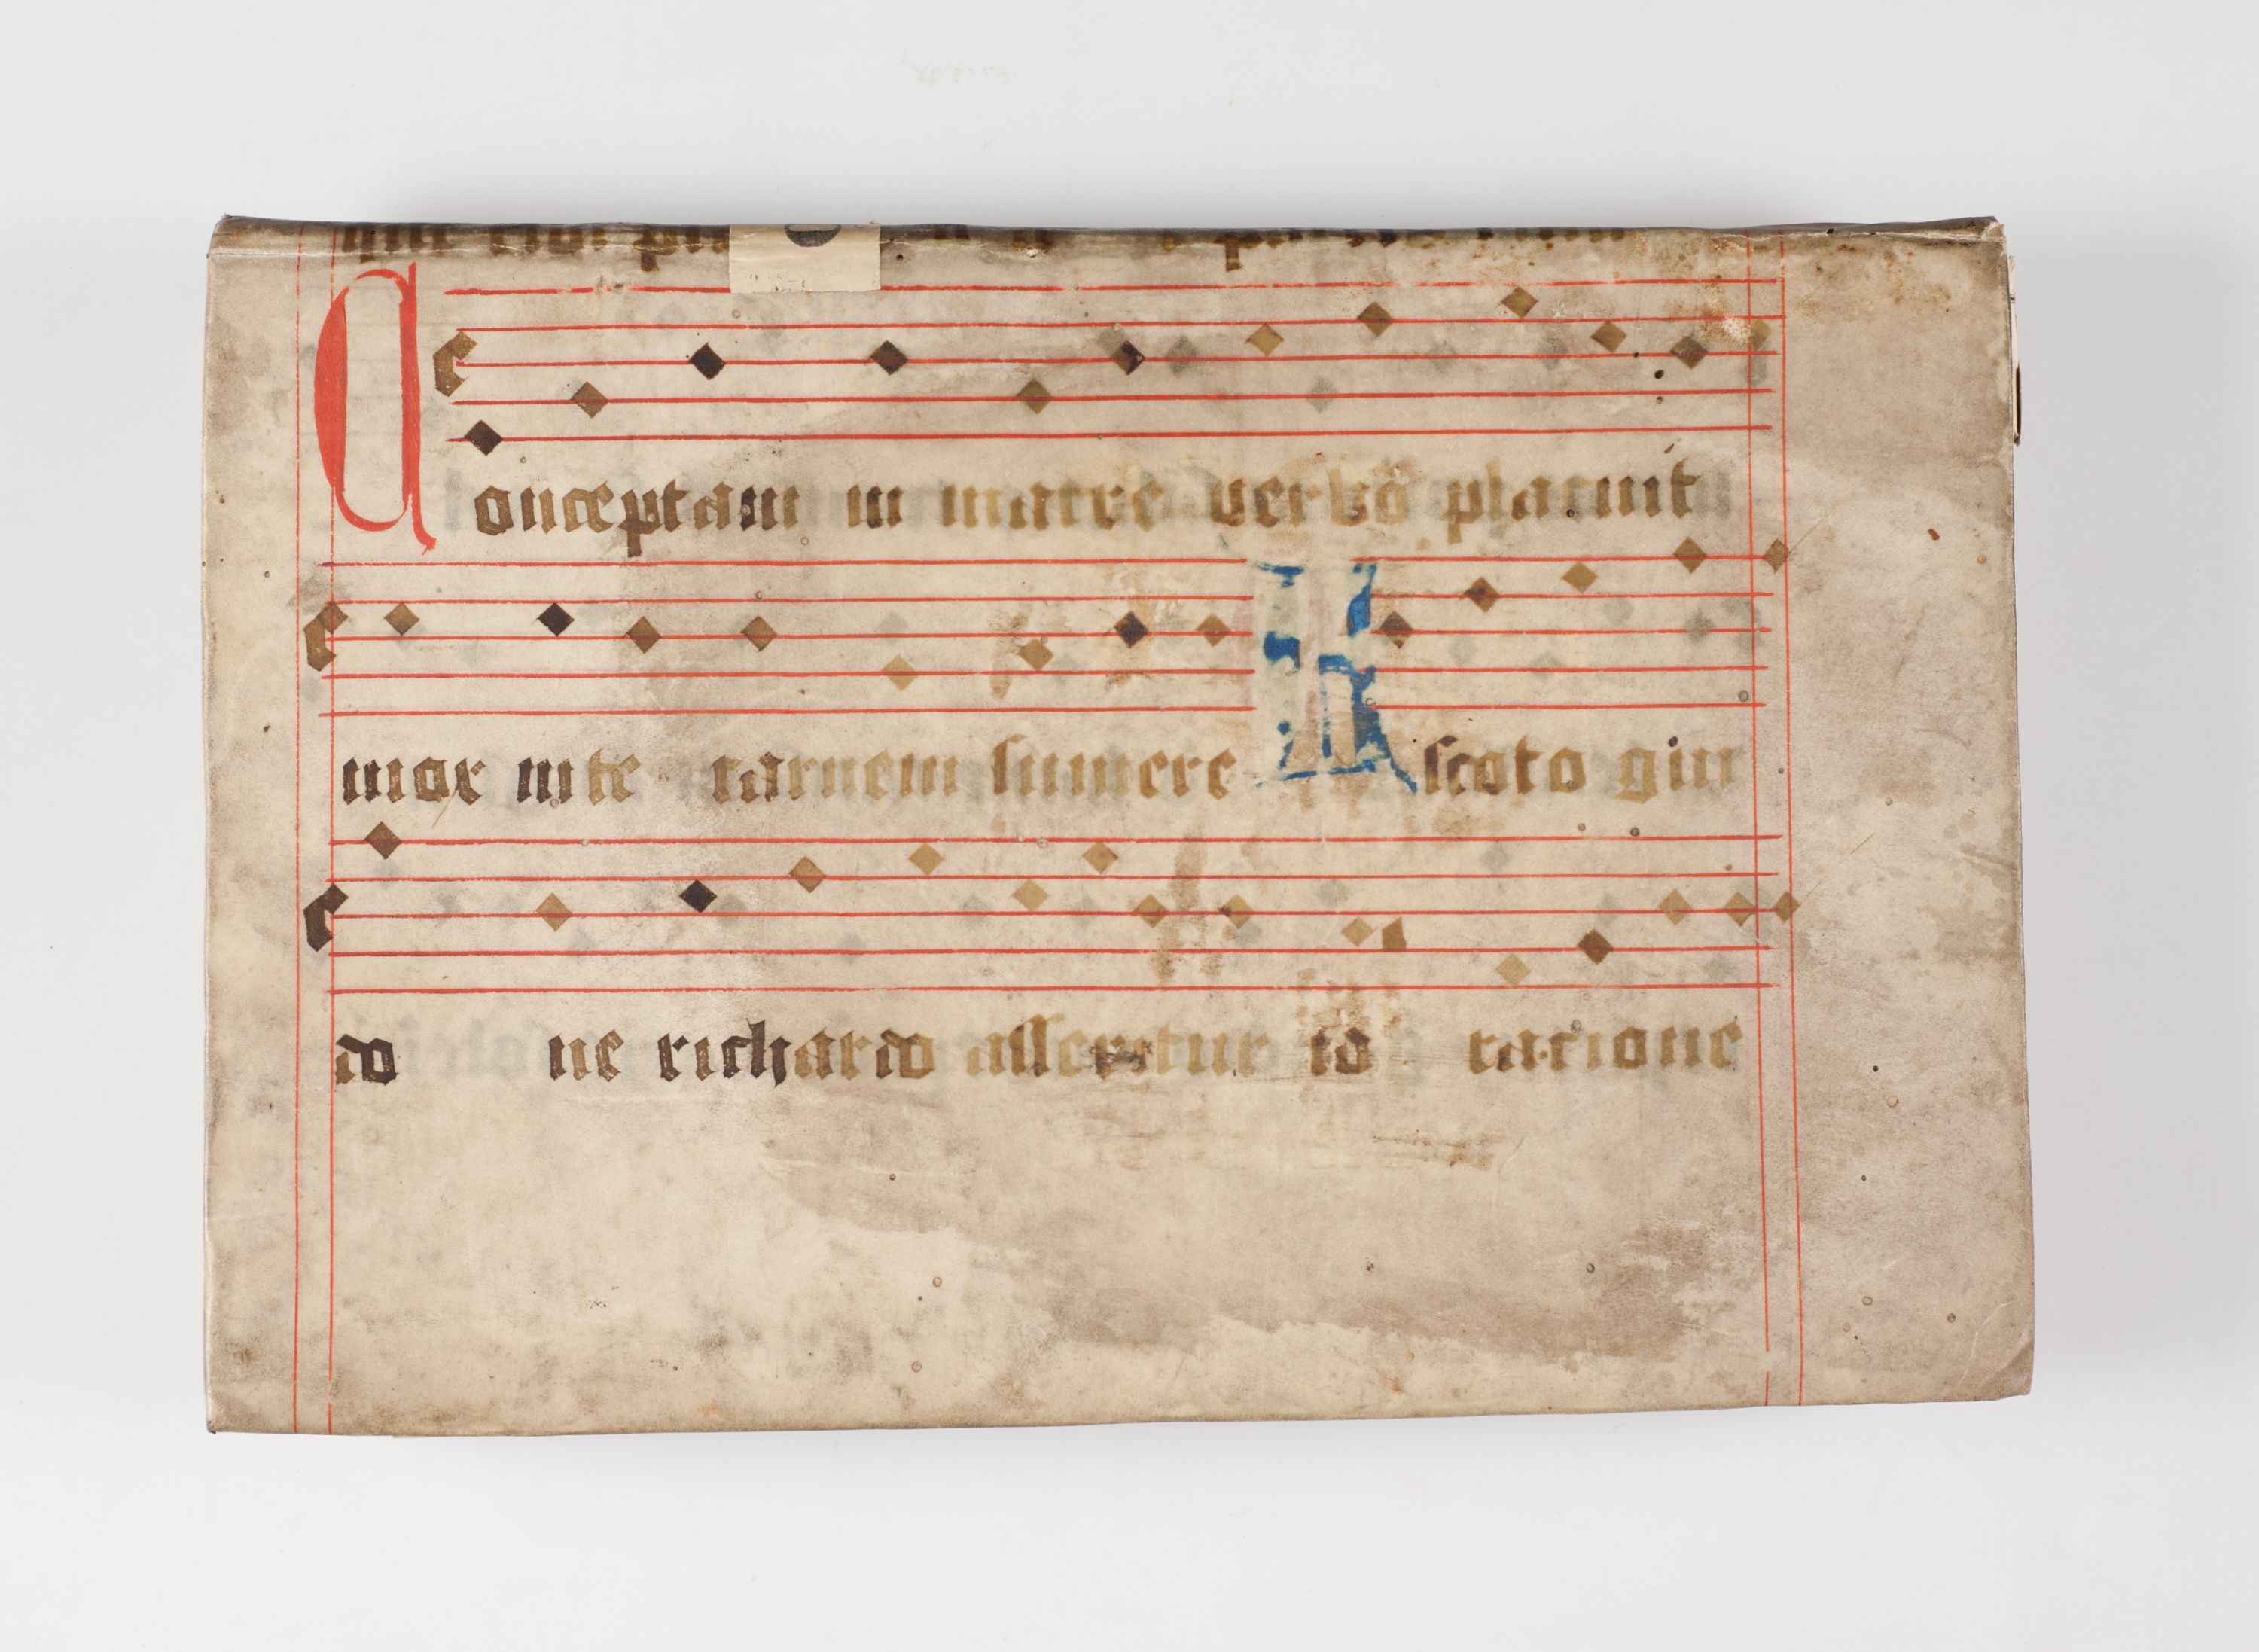 Conceptam in matre verbo placuit
mox in te carnem sumere A scoto giu
do ne richardo asseretur id ratione